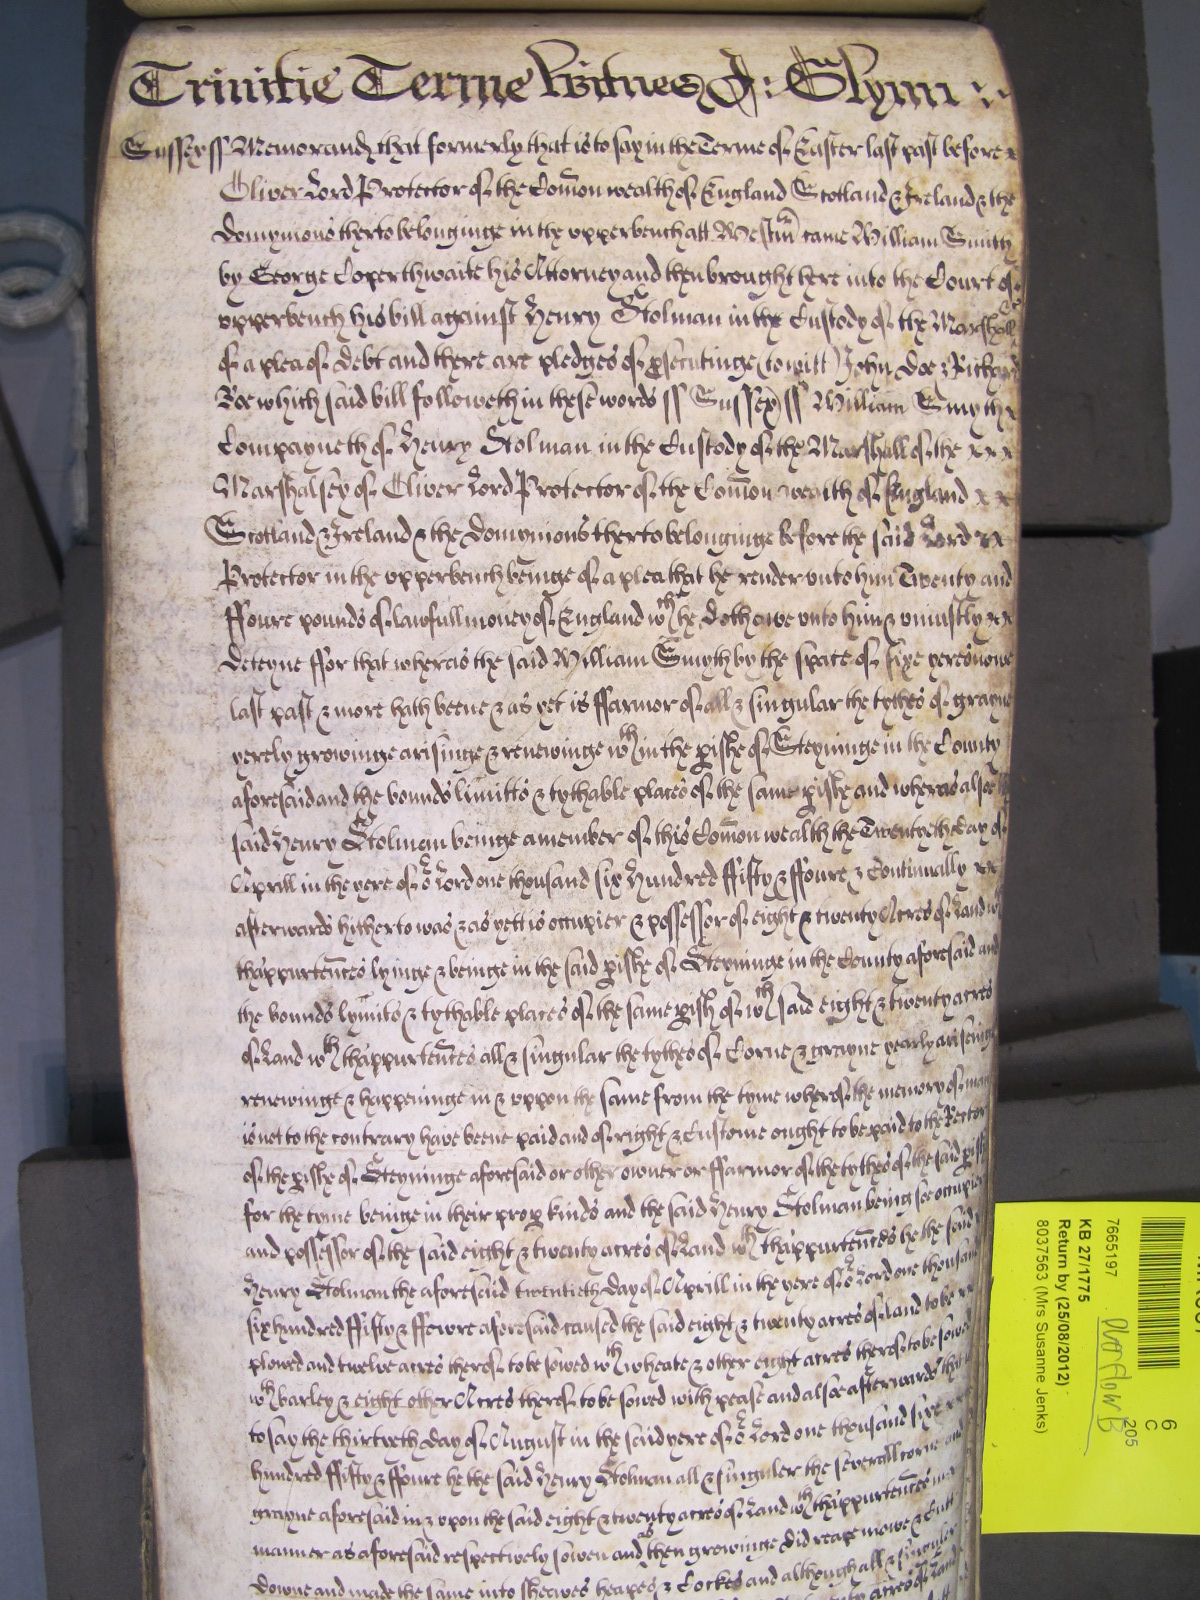 Trinitie Terme Witnes J: Glynn
Sussex ss Memorand that formerly that is to say in the Terme of Easter last past before
Oliver Lord Protector of the Comon wealth of England Scotland & Ireland & the
Domynions therto belonginge in the upper bench att Westm came William Smith
by George Coperthwaite his Attorney and then brought here into the Court of
upperbench his bill against Henry Stolman in the Custody of the Marshall
of a plea of debt and there are pledges of psecutinge (to witt) John Doe & Richard
Roe which said bill followeth in these words ss Sussex ss William Smyth
Compayneth of Henry Stolman in the Custody of the Marshall of the
Marshalsey of Oliver Lord Protector of the Comon wealth of England
Scotland & Ireland & the Domynions therto belonginge before the said Lord
Protector in the upperbench beinge of a plea that he render unto him Twenty and
ffoure pounds of lawfull money of England wch he doth owe unto him & uniustly
deteyne ffor that wheras the said William Smyth by the space of sixe yeres nowe
last past & more hath beene & as yet is ffarmor of all & singular the tythes of grayne
yerely growinge arisinge & renewinge wthin the pishe of Steyninge in the County
aforesaid and the bounds limitts & tythable places of the same pishe and wheras alsoe
said Henry Stolman beinge a member of this Comon wealth the Twentyeth day of
Aprill in the yere of or Lord one thousand six hundred ffifty & ffoure & Continually
afterwards hitherto was & as yett is occupier & possessor of eight & twenty Acres of Land wth
thappurtences lyinge & beinge in the said pishe of Steyninge in the County aforesaid and
the bounds lymits & tythable places of the same pish of wch said eight & twenty acres
of Land wth thappurtences all & singular the tythes of Corne & grayne yearly ariseinge
renewinge & happeninge in & uppon the same from the tyme wherof the memory of man
is not to the contrary have beene paid and of right & Custome ought to be paid to the Rector
of the pishe of Steyninge aforesaid or other owner or ffarmor of the tythes of the said pish
for the tyme beinge in their prop kinds and the said Henry Stolman being soe occupier
and possessor of the said eight & twenty acres of Land wth thappurtences he the said
Henry Stolman the aforesaid twentieth day of Aprill in the yere of or Lord one thousand
six hundred ffifty & ffowre aforesaid caused the said eight & twenty acres of land to be
plowed and twelve acres therof to be sowed wth wheate & other eight acres therof to be sowed
wth barley & eight other Acres therof to be sowed with pease and alsoe afterwards that is
to say the thirtyeth day of August in the said yere of or Lord one thousand sixe
hundred ffifty & ffoure he the said Henry Stolman all & singuler the severall corne and
grayne aforesaid in & upon the said eight & twenty acres of Land wth thappurtences in
manner as aforesaid respectively sowen and as then growinge did reape mowe & Cutt
downe and made the same into sheaves heapes & Cockes and although all & singuler
7665197
KB 27/1775
Return by (25/08/2012)
8037563 (Mrs Susanne Jenks)
6
C
205